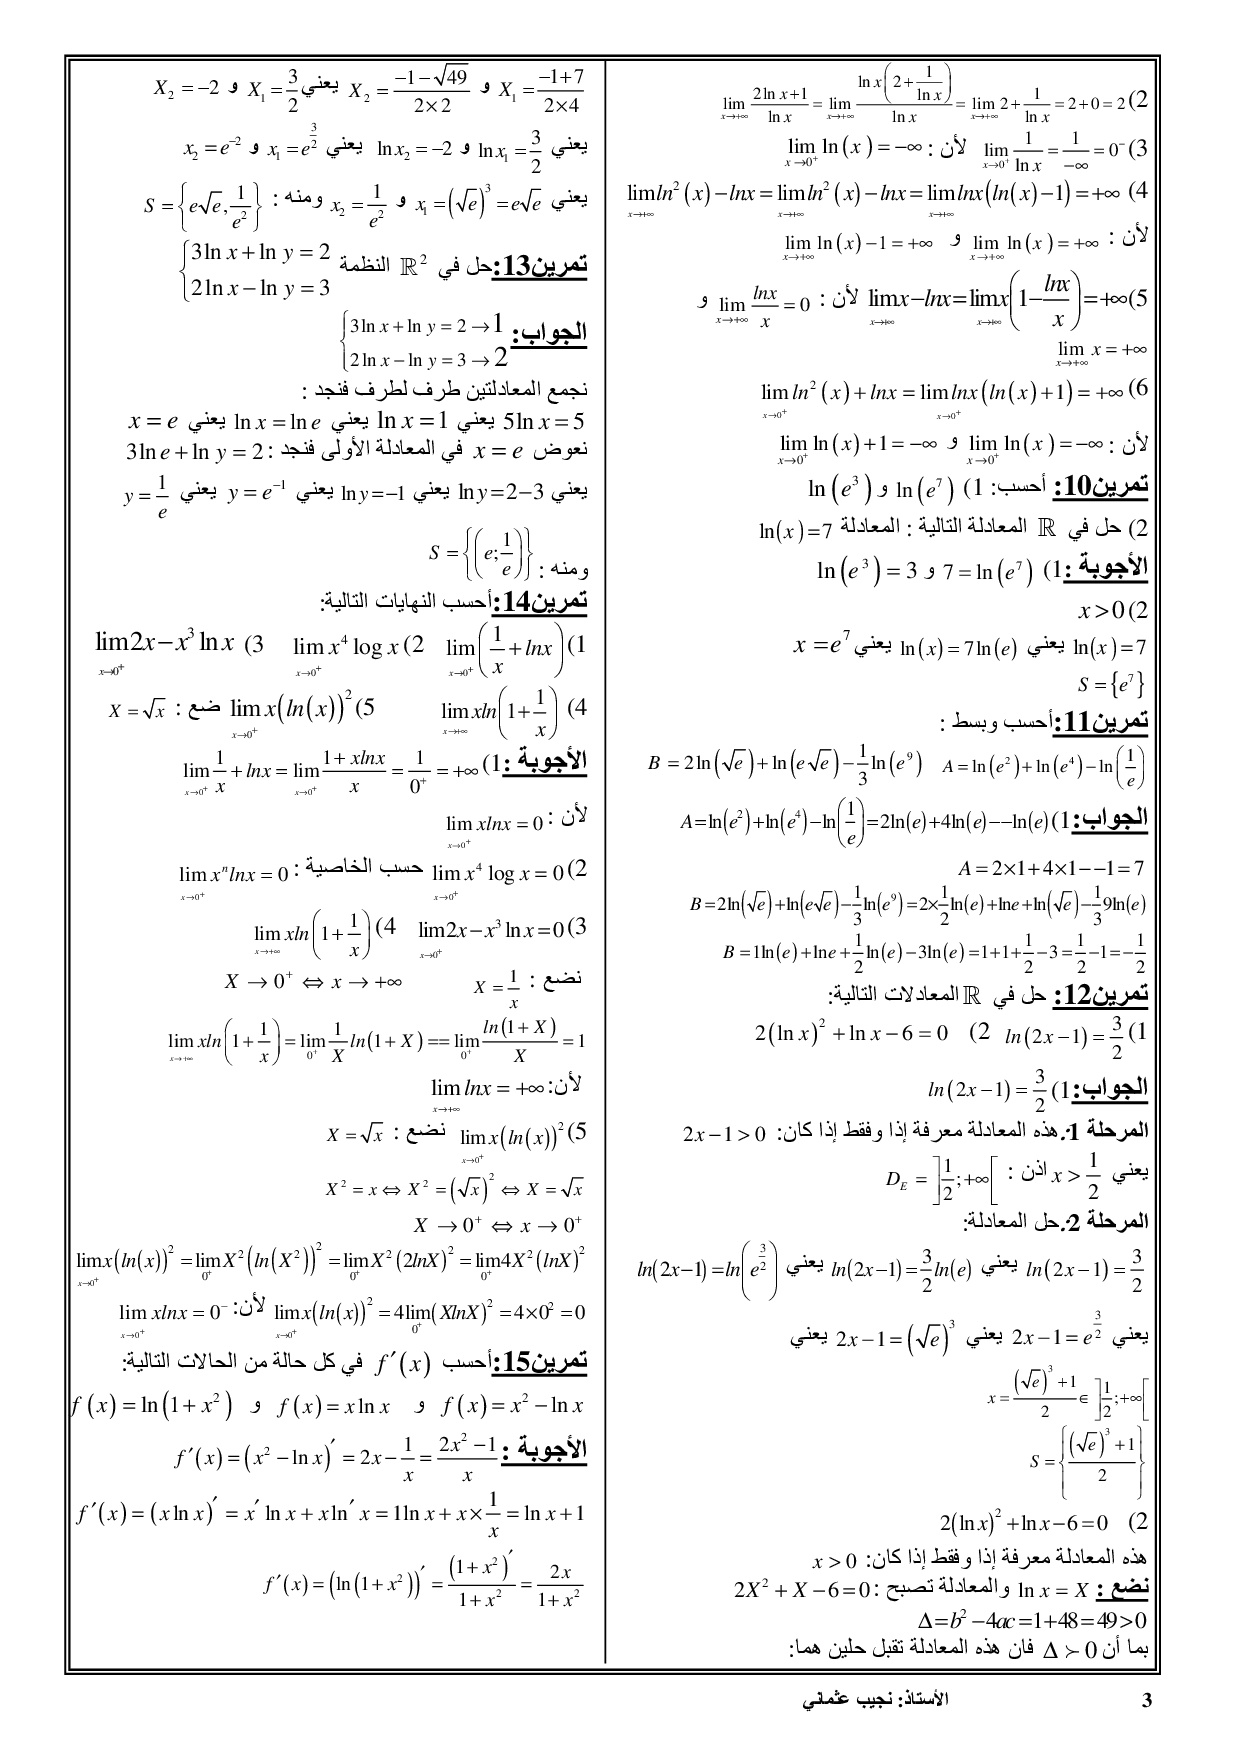 2) lim_{x→+∞} (2ln x+1)/(ln x) = lim_{x→+∞} (ln x(2+1/ln x))/(ln x) = lim_{x→+∞} 2+1/(ln x) = 2+0 = 2
3) lim_{x→0⁺} 1/(ln x) = 1/(−∞) = 0⁻ لأن : lim_{x→0⁺} ln(x) = −∞
4) lim_{x→+∞} ln²(x)−lnx = lim_{x→+∞} ln²(x)−lnx = lim_{x→+∞} lnx(ln(x)−1) = +∞
لأن : lim_{x→+∞} ln(x) = +∞ و lim_{x→+∞} ln(x)−1 = +∞
5) lim_{x→+∞} x−lnx = lim_{x→+∞} x(1−lnx/x) = +∞ لأن : lim_{x→+∞} lnx/x = 0 و
lim_{x→+∞} x = +∞
6) lim_{x→0⁺} ln²(x)+lnx = lim_{x→0⁺} lnx(ln(x)+1) = +∞
لأن : lim_{x→0⁺} ln(x) = −∞ و lim_{x→0⁺} ln(x)+1 = −∞
تمرين10: أحسب: 1) ln(e⁷) و ln(e³)
2) حل في ℝ المعادلة التالية : المعادلة ln(x)=7
الأجوبة :1) 7 = ln(e⁷) و ln(e³) = 3
2) x>0
ln(x)=7 يعني ln(x) = 7ln(e) يعني x = e⁷
S = {e⁷}
تمرين11:أحسب وبسط :
A = ln(e²)+ln(e⁴)−ln(1/e) B = 2ln(√e)+ln(e√e)−1/3 ln(e⁹)
الجواب:1) A=ln(e²)+ln(e⁴)−ln(1/e)=2ln(e)+4ln(e)−−ln(e)
A = 2×1+4×1−−1 = 7
B=2ln(√e)+ln(e√e)−1/3 ln(e⁹)=2×1/2 ln(e)+lne+ln(√e)−1/3 9ln(e)
B = 1ln(e)+lne+1/2 ln(e)−3ln(e)=1+1+1/2−3=1/2−1=−1/2
تمرين12: حل في ℝ المعادلات التالية:
1) ln(2x−1) = 3/2 2) 2(ln x)²+ln x−6 = 0
الجواب:1) ln(2x−1) = 3/2
المرحلة 1.هذه المعادلة معرفة إذا وفقط إذا كان: 2x−1>0
يعني x > 1/2 اذن : D_E = ]1/2;+∞[
المرحلة 2.حل المعادلة:
ln(2x−1) = 3/2 يعني ln(2x−1)=3/2 ln(e) يعني ln(2x−1)=ln(e^{3/2})
يعني 2x−1 = e^{3/2} يعني 2x−1=(√e)³ يعني
x = ((√e)³+1)/2 ∈ ]1/2;+∞[
S = {((√e)³+1)/2}
2) 2(lnx)²+lnx−6=0
هذه المعادلة معرفة إذا وفقط إذا كان: x>0
نضع : ln x = X والمعادلة تصبح : 2X²+X−6=0
Δ=b²−4ac=1+48=49>0
بما أن Δ ≻ 0 فان هذه المعادلة تقبل حلين هما:
X₁ = (−1+7)/(2×4) و X₂ = (−1−√49)/(2×2) يعني X₁ = 3/2 و X₂ = −2
يعني ln x₁ = 3/2 و ln x₂ = −2 يعني x₁ = e^{3/2} و x₂ = e⁻²
يعني x₁ = (√e)³ = e√e و x₂ = 1/e² ومنه : S = {e√e, 1/e²}
تمرين13:حل في ℝ² النظمة {3ln x+ln y = 2
2ln x−ln y = 3
الجواب: {3ln x+ln y = 2 → 1
2ln x−ln y = 3 → 2
نجمع المعادلتين طرف لطرف فنجد :
5ln x = 5 يعني ln x = 1 يعني ln x = ln e يعني x = e
نعوض x = e في المعادلة الأولى فنجد : 3ln e+ln y = 2
يعني ln y=2−3 يعني ln y=−1 يعني y = e⁻¹ يعني y = 1/e
ومنه : S = {(e;1/e)}
تمرين14:أحسب النهايات التالية:
1) lim_{x→0⁺} (1/x+lnx) 2) lim_{x→0⁺} x⁴ log x 3) lim_{x→0⁺} 2x−x³ ln x
4) lim_{x→+∞} xln(1+1/x) 5) lim_{x→0⁺} x(ln(x))² ضع : X = √x
الأجوبة :1) lim_{x→0⁺} 1/x+lnx = lim_{x→0⁺} (1+xlnx)/x = 1/0⁺ = +∞
لأن : lim_{x→0⁺} xlnx = 0
2) lim_{x→0⁺} x⁴ log x = 0 حسب الخاصية : lim_{x→0⁺} xⁿlnx = 0
3) lim_{x→0⁺} 2x−x³ ln x=0 4) lim_{x→+∞} xln(1+1/x)
نضع : X = 1/x X → 0⁺ ⇔ x → +∞
lim_{x→+∞} xln(1+1/x) = lim_{0⁺} 1/X ln(1+X) == lim_{0⁺} ln(1+X)/X = 1
لأن: lim_{x→+∞} lnx = +∞
5) lim_{x→0⁺} x(ln(x))² نضع : X = √x
X² = x ⇔ X² = (√x)² ⇔ X = √x
X → 0⁺ ⇔ x → 0⁺
lim_{x→0⁺} x(ln(x))² = lim_{0⁺} X²(ln(X²))² = lim_{0⁺} X²(2lnX)² = lim_{0⁺} 4X²(lnX)²
lim_{x→0⁺} x(ln(x))² = 4lim_{0⁺}(XlnX)² = 4×0² = 0 لأن: lim_{x→0⁺} xlnx = 0⁻
تمرين15:أحسب f′(x) في كل حالة من الحالات التالية:
f(x) = x²−ln x و f(x) = x ln x و f(x) = ln(1+x²)
الأجوبة : f′(x) = (x²−ln x)′ = 2x−1/x = (2x²−1)/x
f′(x) = (x ln x)′ = x′ ln x + x ln′ x = 1ln x + x×1/x = ln x+1
f′(x) = (ln(1+x²))′ = (1+x²)′/(1+x²) = 2x/(1+x²)
الأستاذ: نجيب عثماني 3